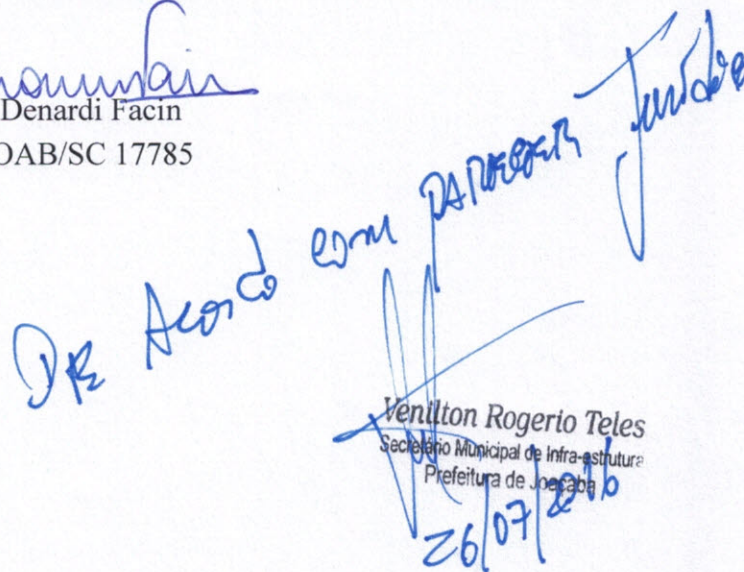 Denardi Facin
OAB/SC 17785
De Acordo com PARECER Jurídico
Venilton Rogerio Teles
Secretário Municipal de Infra-estrutura
Prefeitura de Joaçaba
26/07/2016